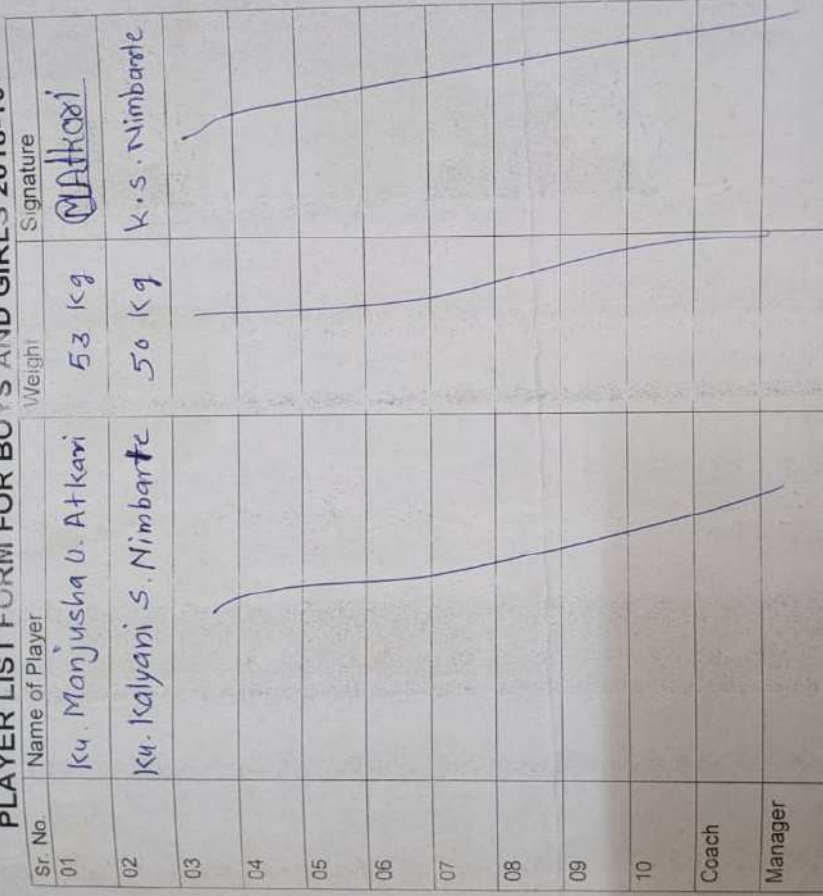 PLAYER LIST FORM FOR BOYS AND GIRLS
Sr. No. Name of Player Weight Signature
01 Ku. Manjusha U. Atkari 53 kg MAtkari
02 Ku. Kalyani S. Nimbarte 50 kg K.S. Nimbarte
03
04
05
06
07
08
09
10
Coach
Manager